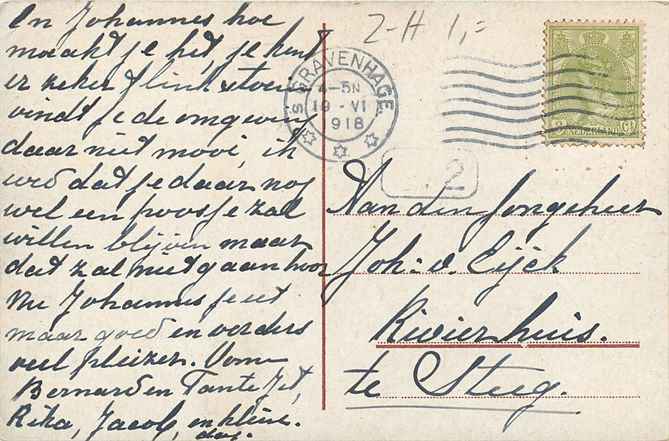 En Johannes hoe
maakt je het, je bent
er zeker flink
vindt je de omgeving
daar niet mooi, ik
wed dat je daar nog
wel een poosje zal
willen blijven maar
dat zal niet gaan hoor
Nu Johannes je eet
maar goed en verders
veel plezier. Oome
Bernard en Tante Jet,
Rika, Jacob, en kleine.
dag.
Z-H 1,=
'S GRAVENHAGE
4-5N
19 · VI
1918
2
NEDERLAND
Aan den Jongeheer
Joh. v. Eijck
Rivierhuis.
te Steeg.